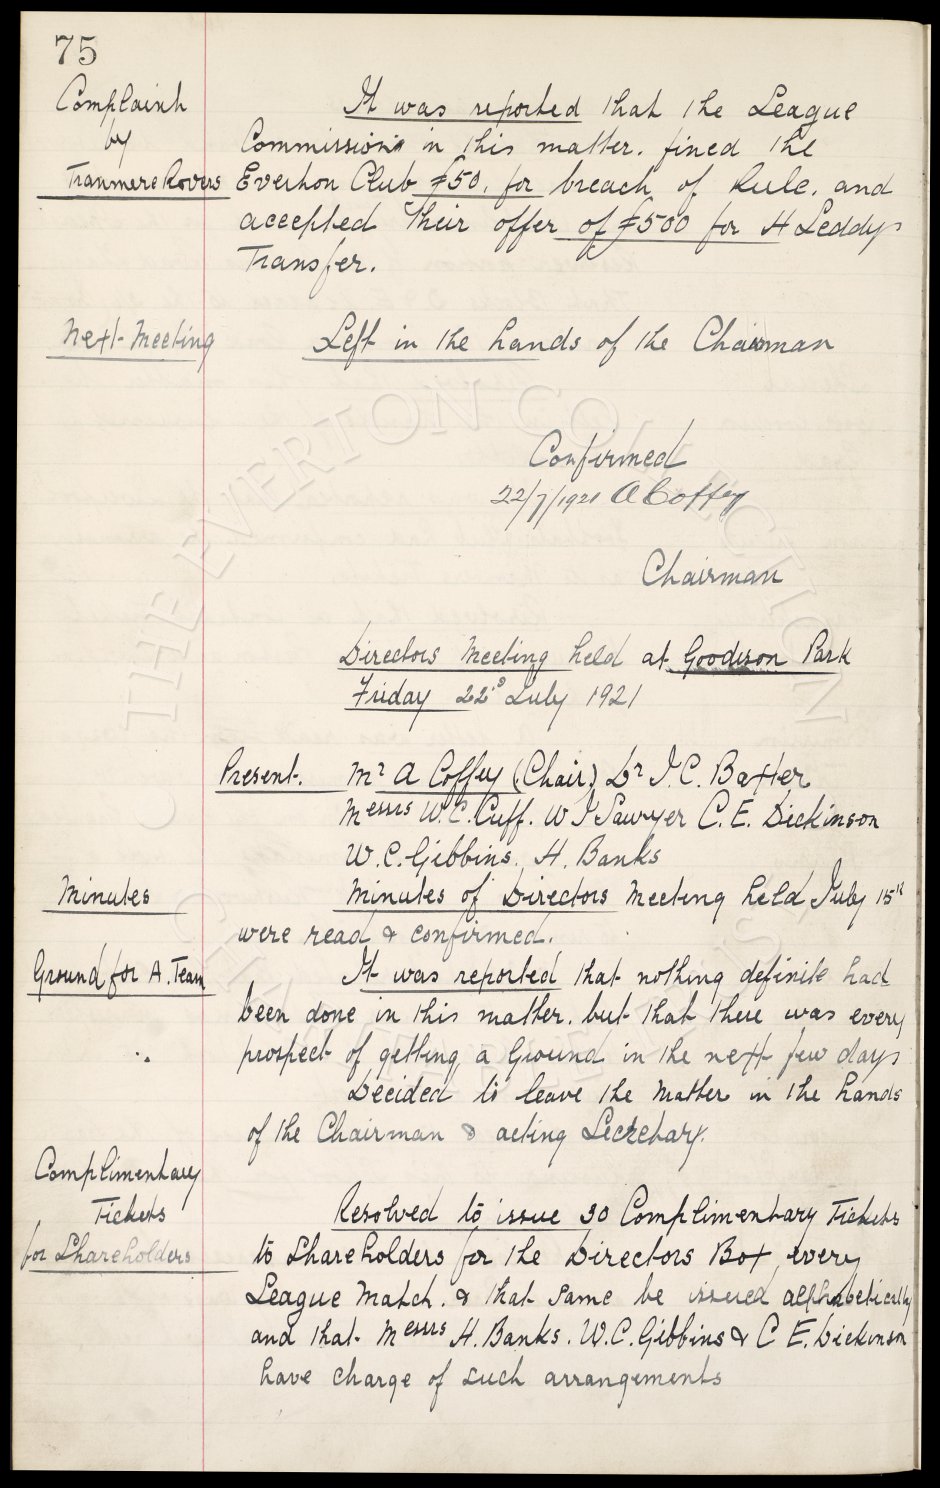 75
Complaint
by
Tranmere Rovers
It was reported that the League
Commission in this matter. fined the
Everton Club £50. for breach of Rule. and
accepted their offer of £500 for H Leddys
Transfer.
Next Meeting
Left in the hands of the Chairman
Confirmed
22/7/1921 A Coffey
Chairman
Directors Meeting held at Goodison Park
Friday 22nd July 1921
Present. Mr A Coffey (Chair) Dr J. C. Baxter
Messrs W. C. Cuff. W J Sawyer C. E. Dickinson
W. C. Gibbins. H. Banks
Minutes
Minutes of Directors Meeting held July 15th
were read & confirmed.
Ground for A. Team
It was reported that nothing definite had
been done in this matter. but that there was every
prospect of getting a Ground in the next few days
Decided to leave the Matter in the hands
of the Chairman & acting Secretary.
Complimentary
Tickets
for Shareholders
Resolved to issue 30 Complimentary Tickets
to Shareholders for the Directors Box every
League Match. & that same be issued alphabetically
and that Messrs H. Banks. W. C. Gibbins & C E. Dickinson
have charge of such arrangements
THE EVERTON COLLECTION